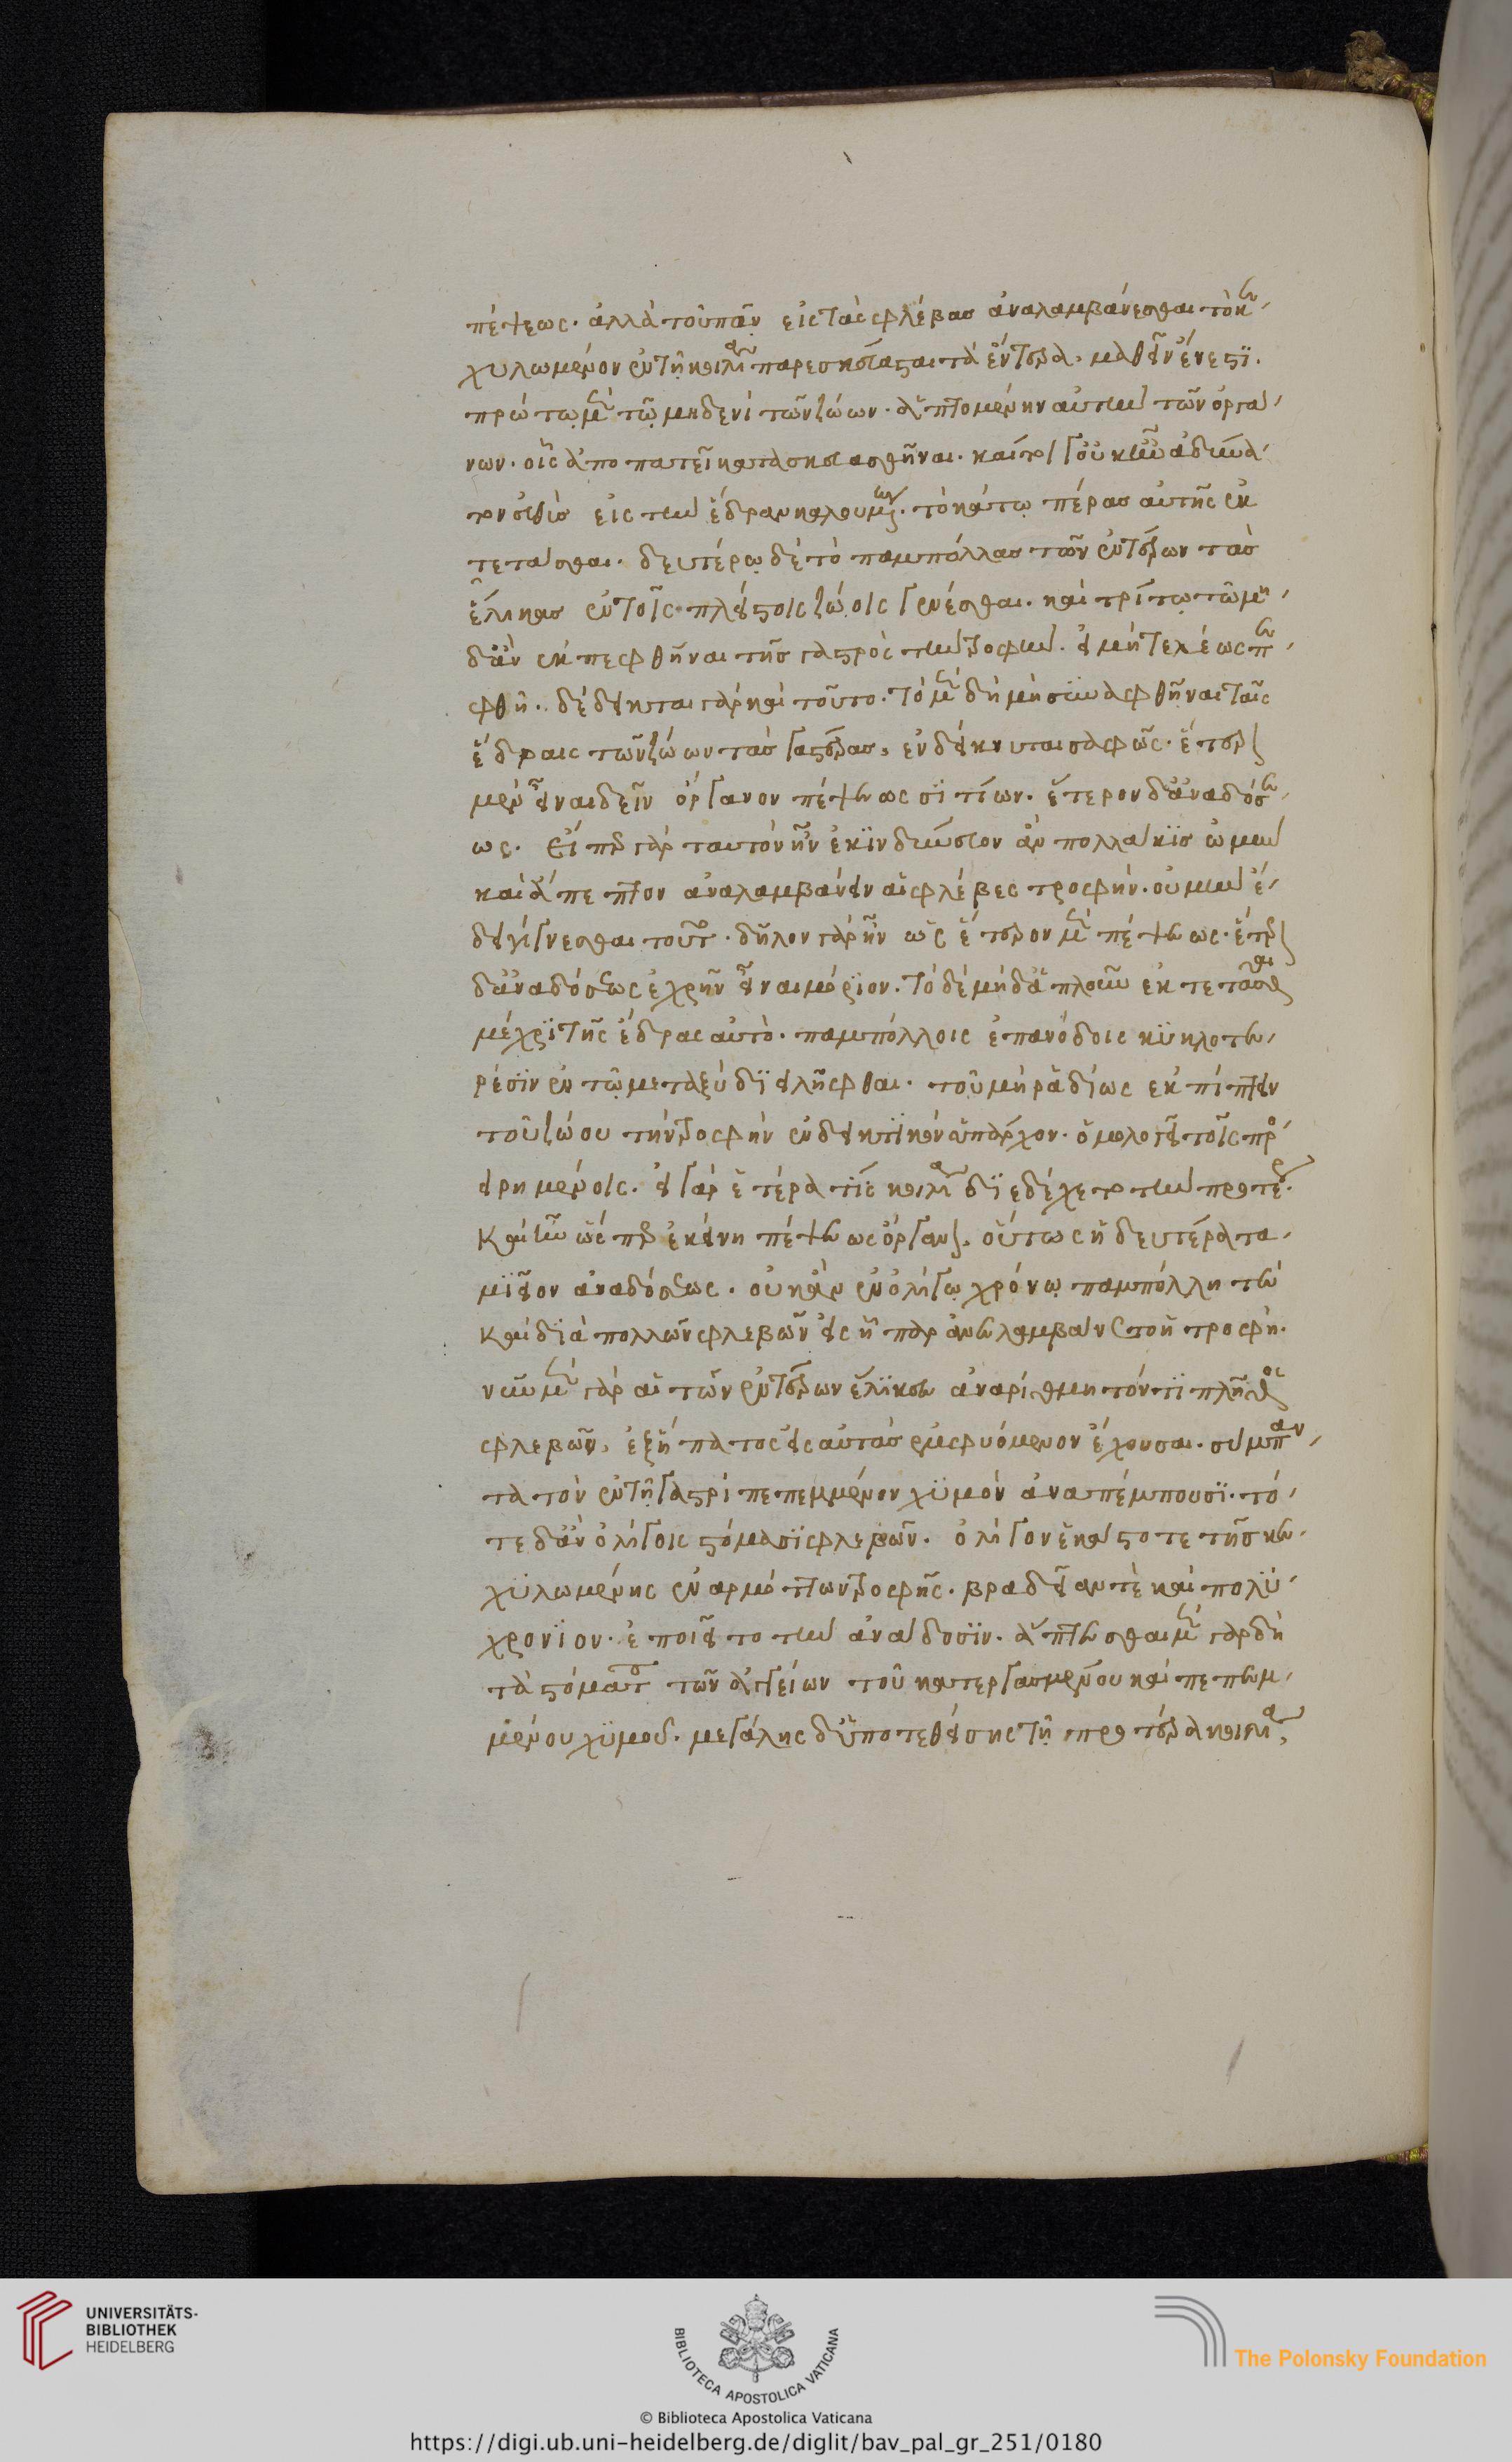 πέψεως. ἀλλὰ τοῦ πᾶν εἰς τὰς φλέβας ἀναλαμβάνεσθαι τὸ κε
χυλωμένον ἐν τῇ κοιλία παρεσκεύασται τὰ ἔντερα. μαθεῖν ἔνεστι.
πρώτω μὲν τῶ μηδενὶ τῶν ζώων. ἁπτομένην αὐτὴν τῶν ὀργά
νων. οἷς ἀποπατεῖ κατασκευασθῆναι. καίτοι γ' οὐκ ἦν ἀδύνα
τον εὐθὺς εἰς τὴν ἕδραν καλουμένην. τὸ κάτω πέρας αὐτῆς ἐκ
τετάσθαι. δευτέρω δὲ τὸ παμπόλλας τῶν ἐντέρων τὰς
ἕλικας ἐν τοῖς πλείστοις ζώοις γενέσθαι. καὶ τρίτω τῶ μη
δὲν ἐκπεφθῆναι τῆς γαστρὸς τὴν τροφὴν. εἰ μὴ τελέως πε
φθῆ. δέδεικται γὰρ καὶ τοῦτο. τὸ μὲν δὴ μὴ συναφθῆναι ταῖς
ἕδραις τῶν ζώων τὰς γαστέρας, ἐνδείκνυται σαφῶς. ἕτερον
μὲν εἶναι δεῖν ὄργανον πέψεως σιτίων. ἕτερον δ' ἀναδόσε
ως. εἴπερ γὰρ ταυτὸν ἦν ἐκινδύνευον ἂν πολλάκις ὠμὴν
καὶ ἄπεπτον ἀναλαμβάνειν αἱ φλέβες τροφήν. οὐ μὴν ἔ
δει γίγνεσθαι τοῦτο. δῆλον γὰρ ἦν ὡς ἕτερον μὲν πέψεως. ἕτερον
δ' ἀναδόσεως ἐχρῆν εἶναι μόριον. τὸ δὲ μὴ δ' ἁπλοῦν ἐκτετάσθαι
μέχρι τῆς ἕδρας αὐτὸ. παμπόλλοις ἐπανόδοις κυκλοτε
ρέσιν ἐν τῶ μεταξὺ διειλῆφθαι. τοῦ μὴ ῥαδίως ἐκπίπτειν
τοῦ ζώου τὴν τροφὴν ἐνδεικτικὸν ὑπάρχον. ὁμολογεῖ τοῖς προ
ειρημένοις. εἰ γὰρ ἑτέρα τις κοιλία διεδέχετο τὴν προτέραν.
καὶ ἦν ὥσπερ ἐκείνη πέψεως ὄργανον, οὕτως ἡ δευτέρα τα
μιεῖον ἀναδόσεως. οὐκ ἂν ἐν ὀλίγω χρόνω παμπόλλη τε
καὶ διὰ πολλῶν φλεβῶν εἰς ἧπαρ ἀνελαμβάνετο ἡ τροφή.
νῦν μὲν γὰρ αἱ τῶν ἐντέρων ἕλικες ἀναρίθμητόν τι πλῆθος
φλεβῶν, ἐξ ἥπατος εἰς αὐτὰς ἐμφυόμενον ἔχουσαι. σύμπαν
τα τὸν ἐν τῇ γαστρὶ πεπεμμένον χυμὸν ἀναπέμπουσι. τό
τε δ' ἂν ὀλίγοις στόμασι φλεβῶν. ὀλίγον ἑκάστοτε τῆς κε
χυλωμένης ἐναρμόττων τροφῆς. βραδεῖαν τὲ καὶ πολυ
χρόνιον. ἐποιεῖτο τὴν ἀνάδοσιν. ἅπτεσθαι μὲν γὰρ δὴ
τὰ στόματα τῶν ἀγγείων τοῦ κατειργασμένου καὶ πεπεμ
μένου χυμοῦ. μεγάλης δ' ὑποτεθείσης τῇ προτέρα κοιλία,
UNIVERSITÄTS-
BIBLIOTHEK
HEIDELBERG
BIBLIOTECA APOSTOLICA VATICANA
The Polonsky Foundation
© Biblioteca Apostolica Vaticana
https://digi.ub.uni-heidelberg.de/diglit/bav_pal_gr_251/0180